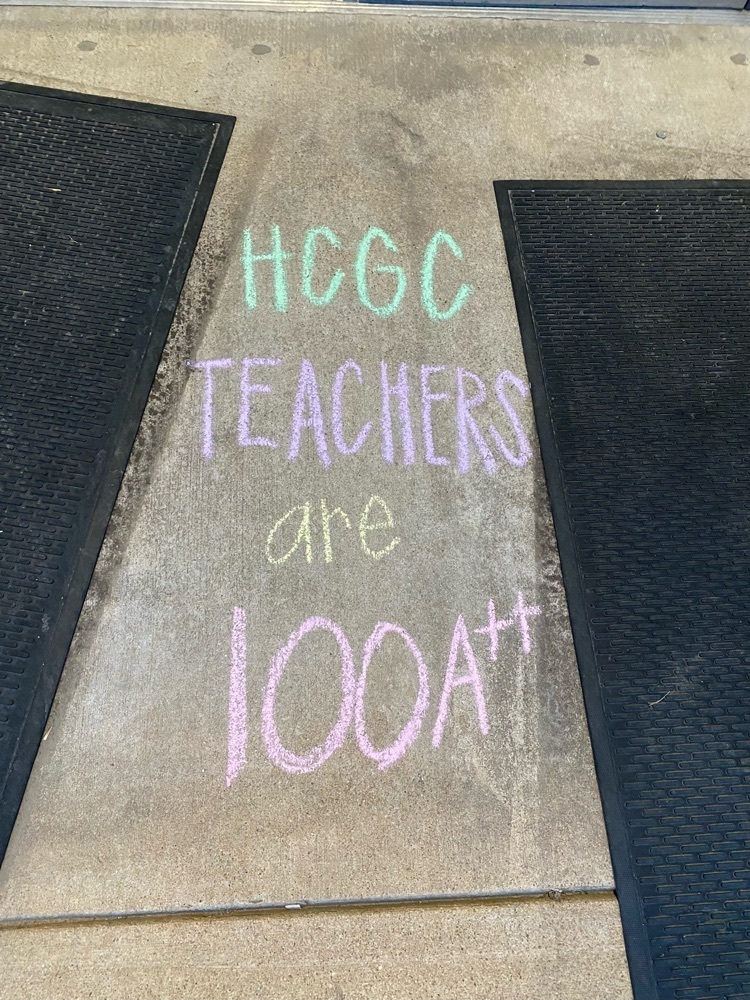 HCGC
TEACHERS
are
100A++